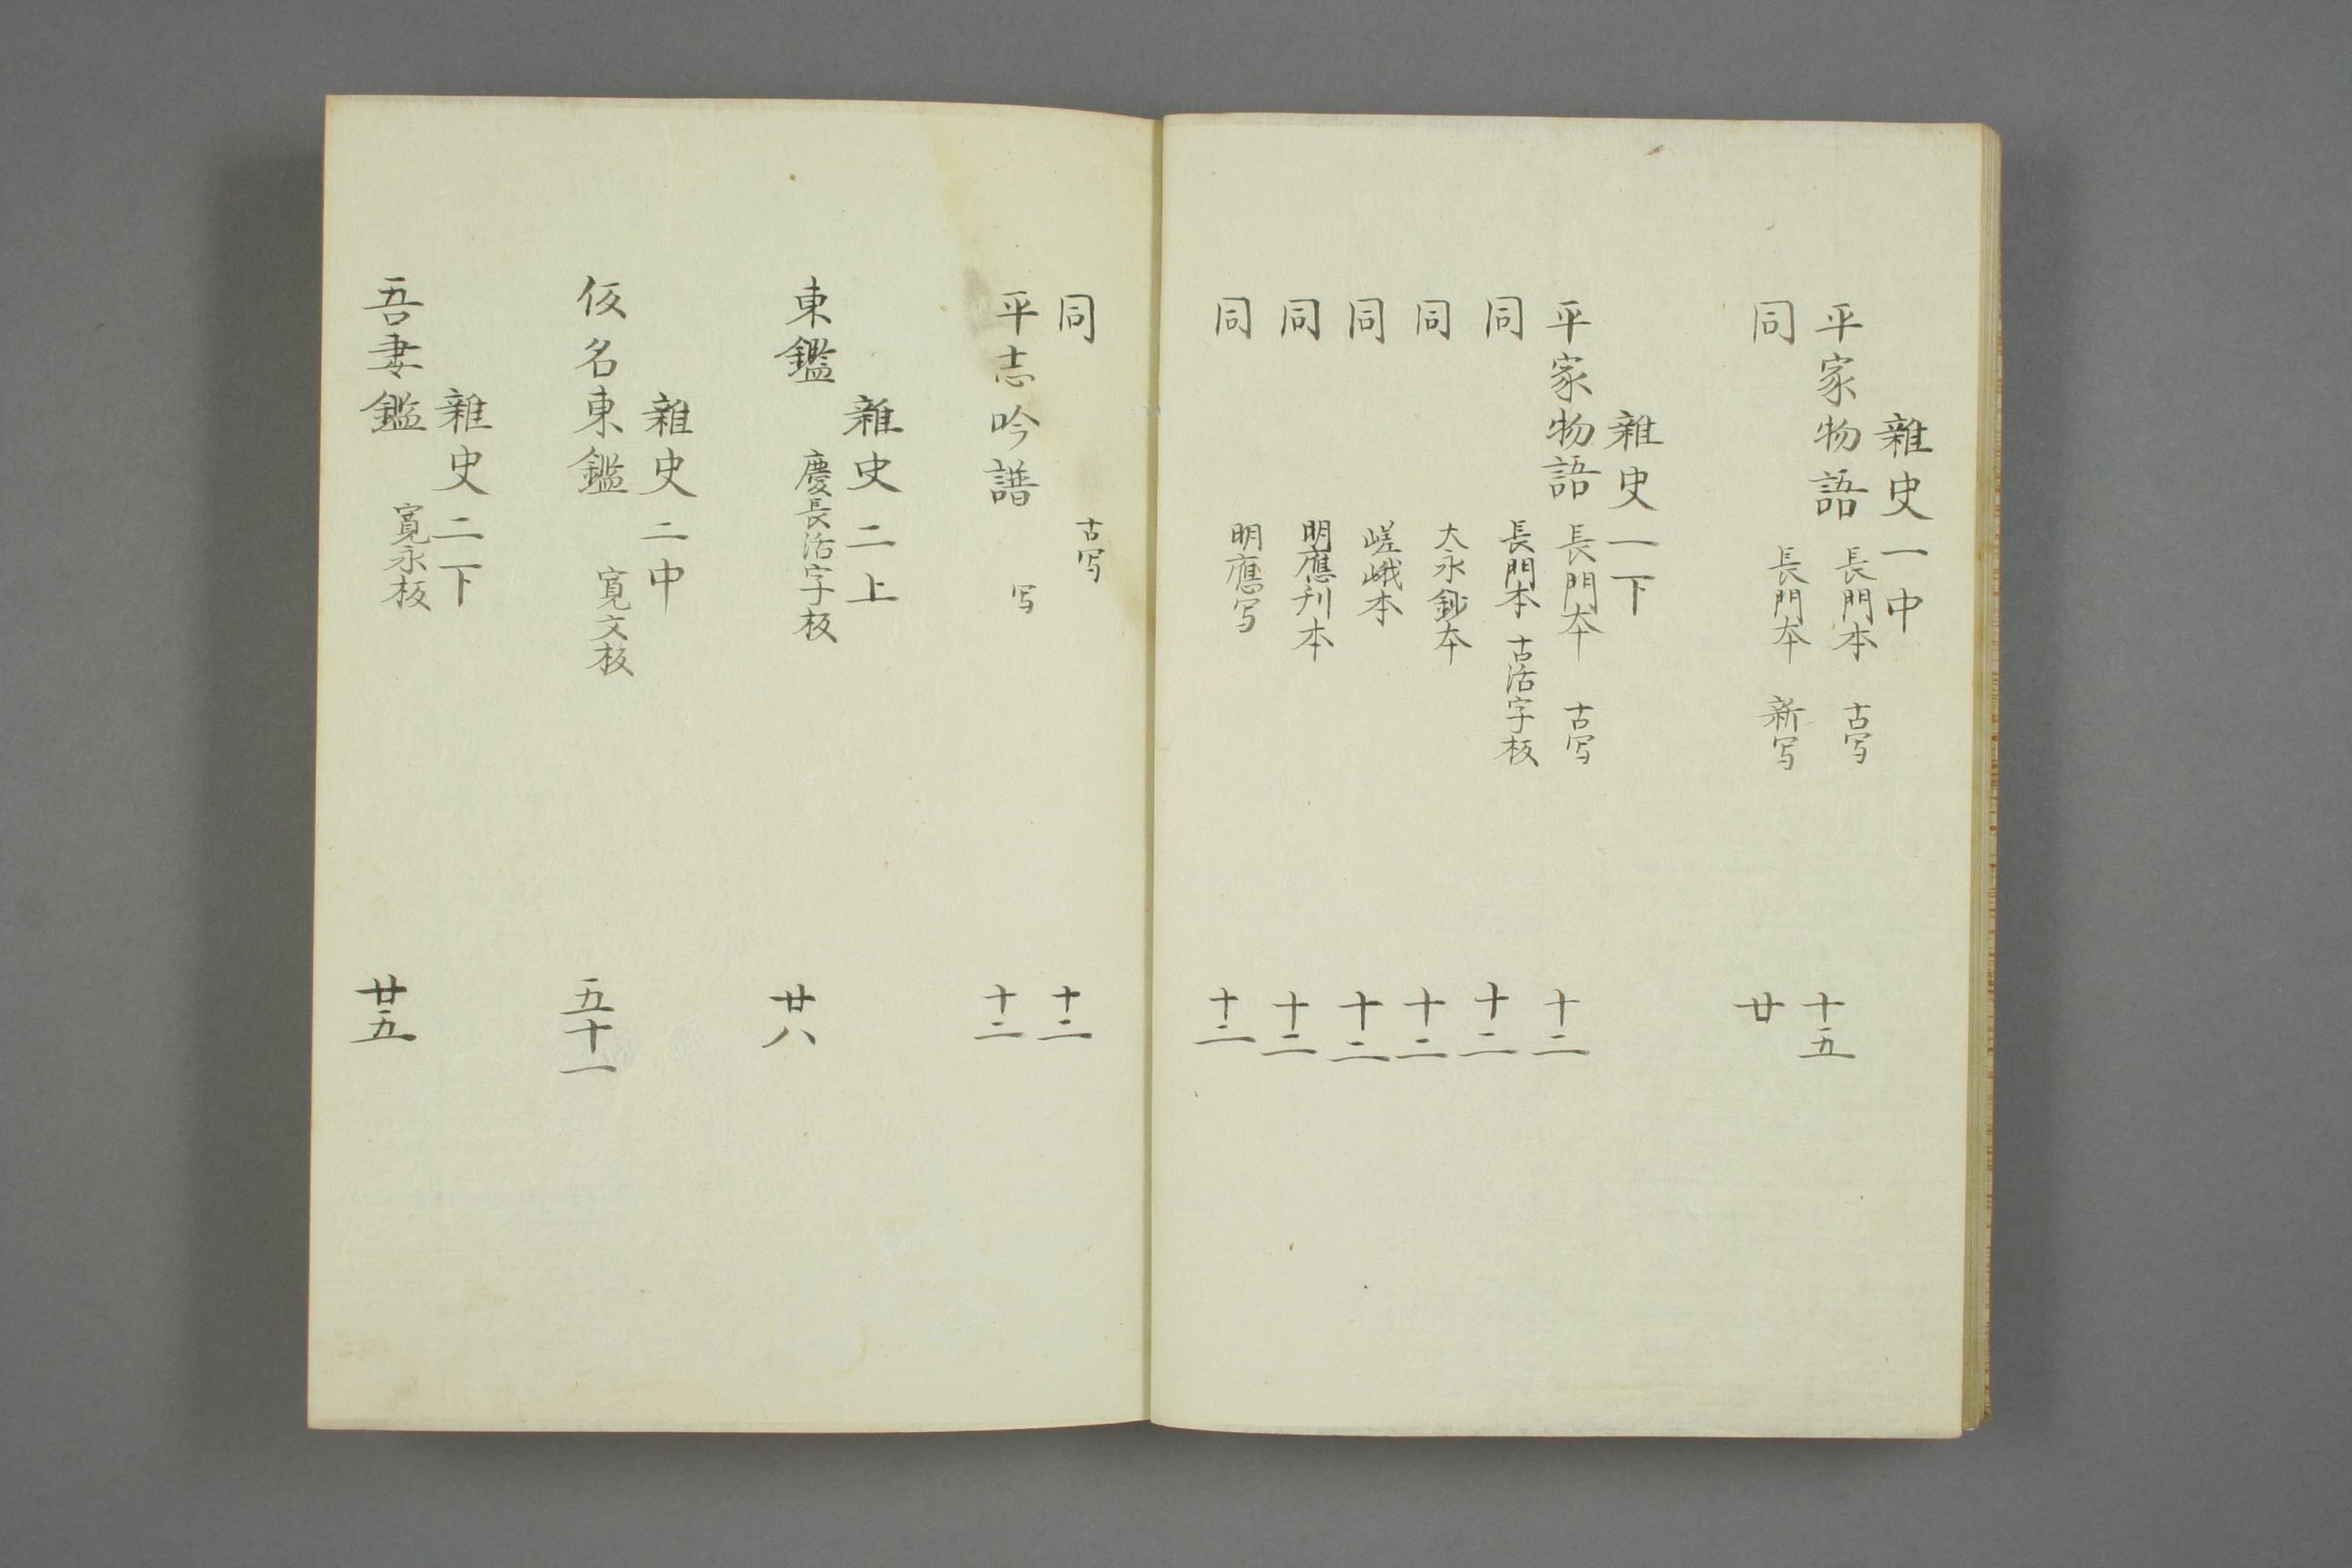 雜史一中
平家物語 長門本 古写 十五
同 長門本 新写 廿
雜史一下
平家物語 長門本 古写 十二
同 長門本 古活字板 十二
同 大永鈔本 十二
同 嵯峨本 十二
同 明應刋本 十二
同 明應写 十二
同 古写 十二
平志吟譜 写 十二
雜史二上
東鑑 慶長活字板 廿八
雜史二中
仮名東鑑 寛文板 五十一
雜史二下
吾妻鑑 寛永板 廿五